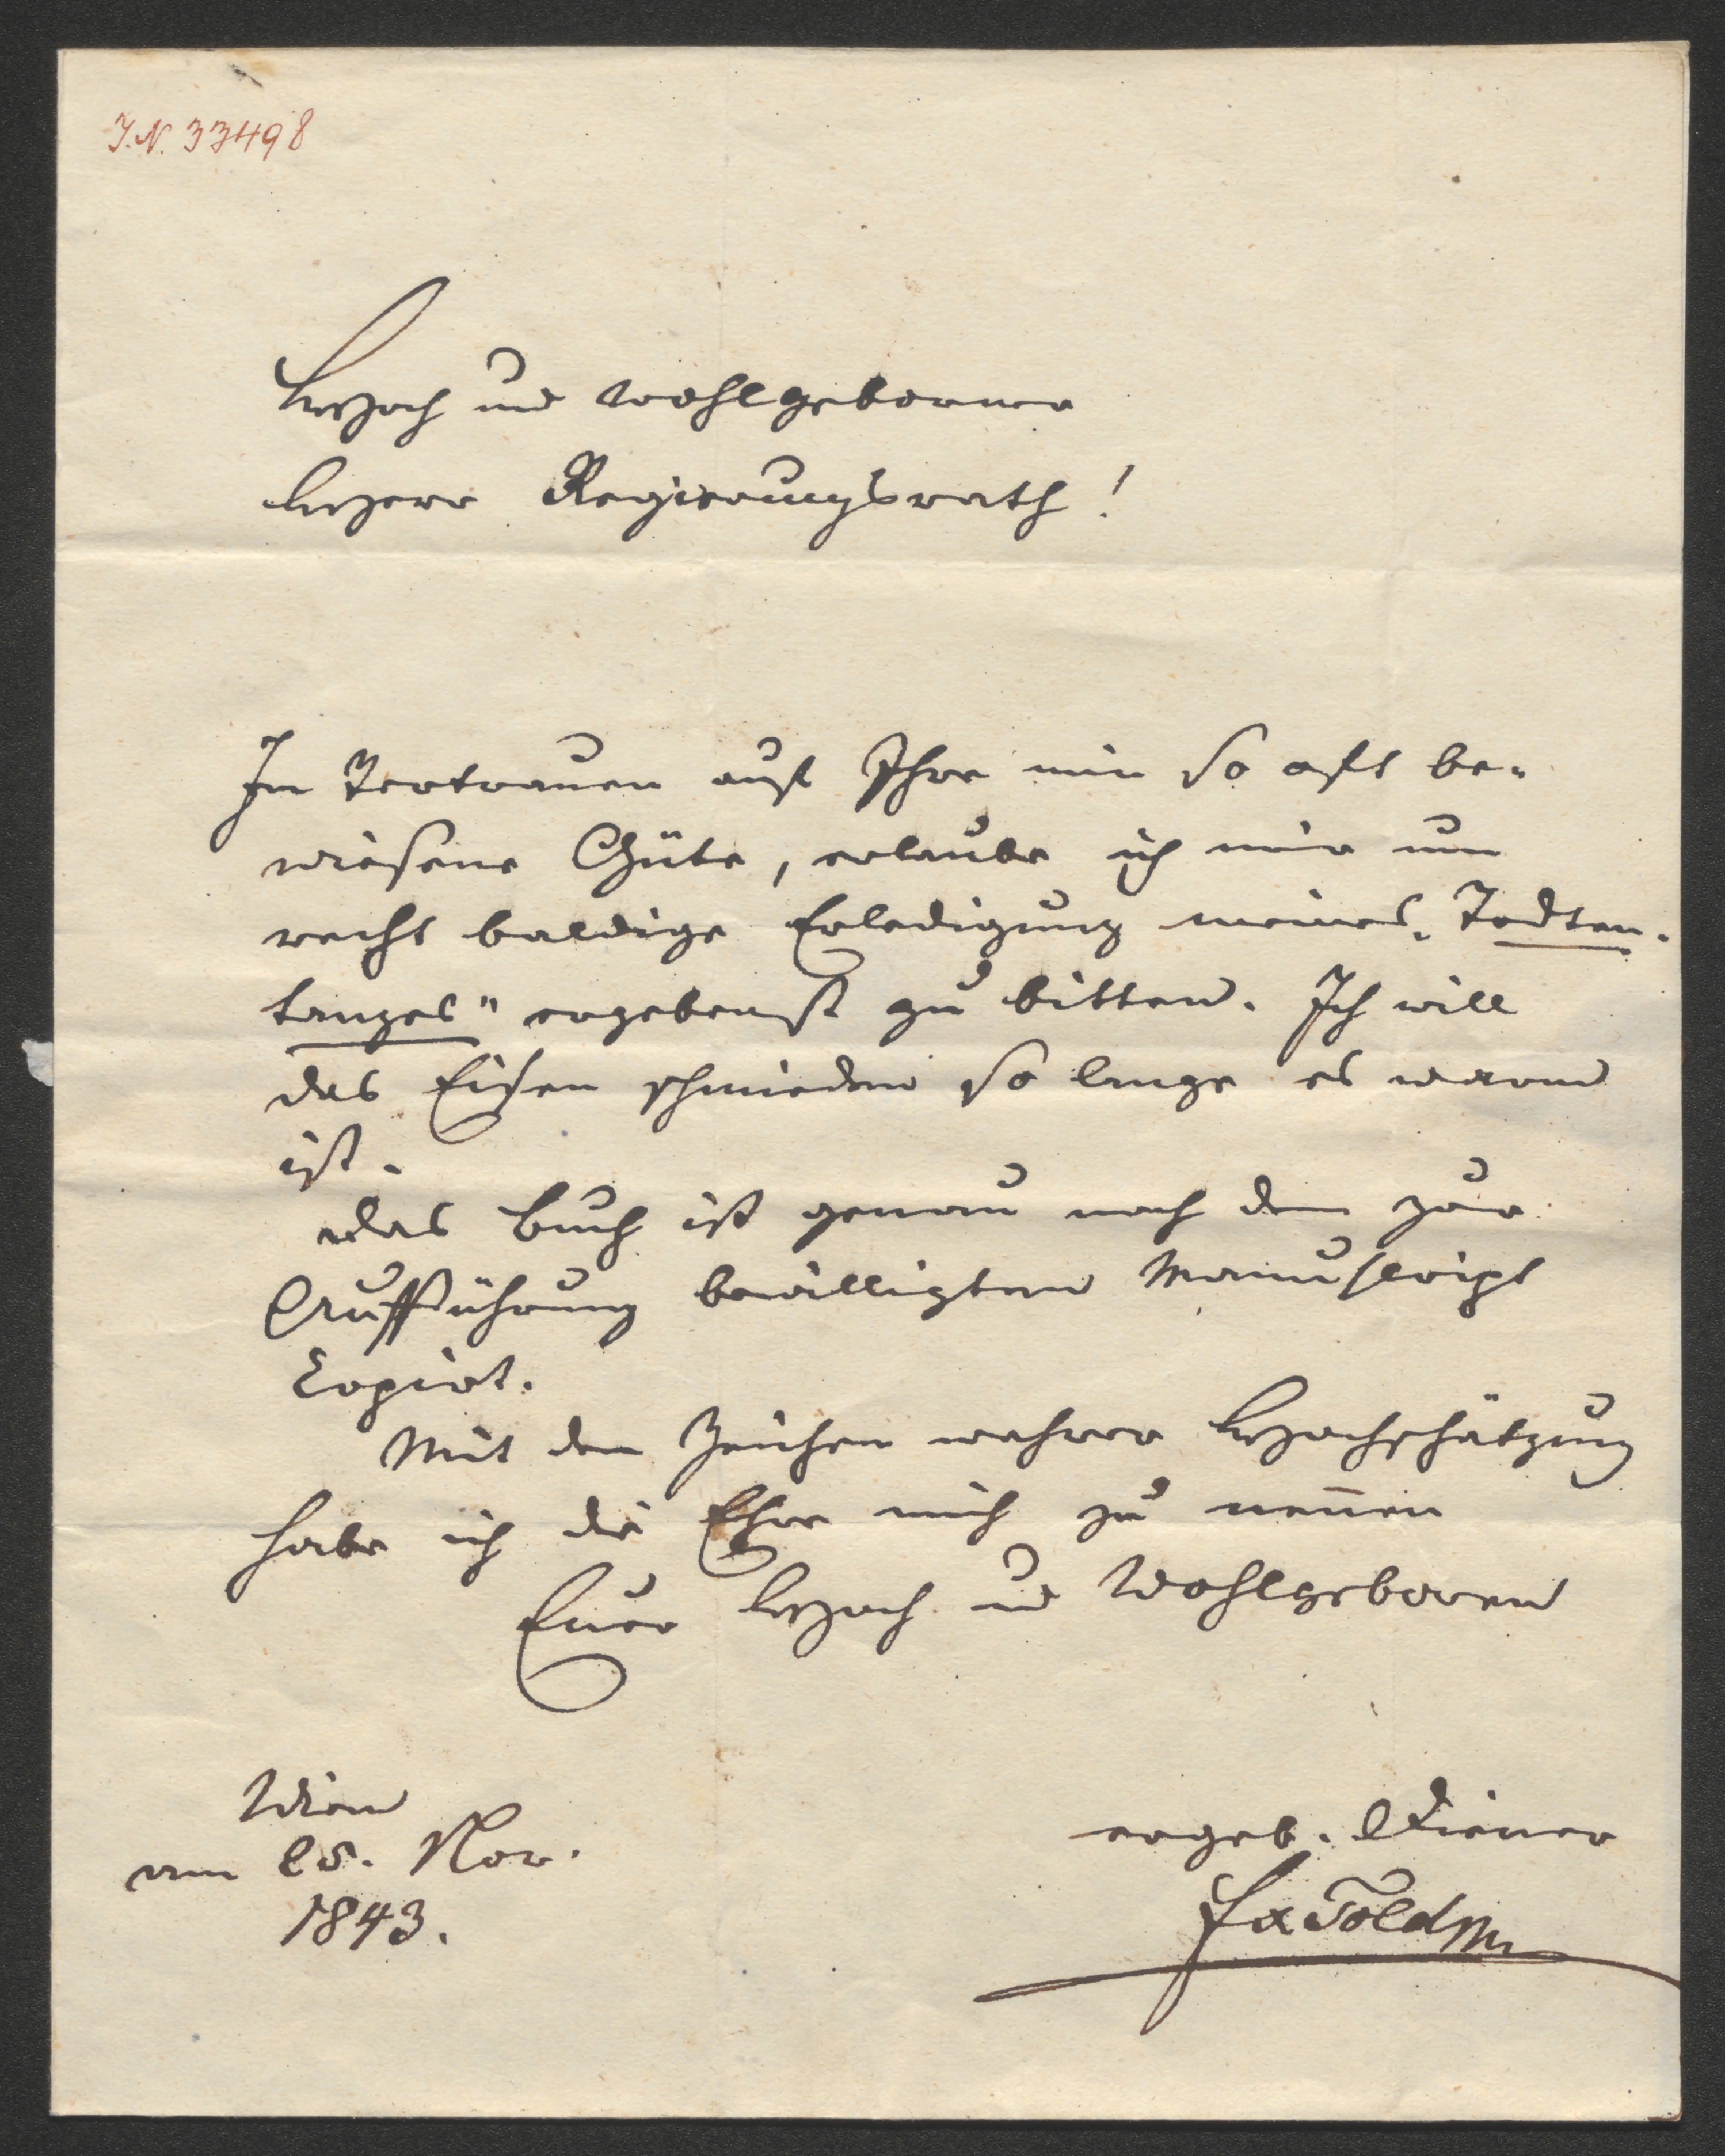 J.N. 33498
Hoch und Wohlgeborner
Herr Regierungsrath!
Im Vertrauen auf Ihre mir so oft be-
wiesene Güte, erlaube ich mir um
recht baldige Erledigung meines „Todten-
tanzes" ergebenst zu bitten. Ich will
das Eisen schmieden so lange es warm
ist.
Das Buch ist genau nach dem zur
Aufführung bewilligten Manuscript
Copirt.
Mit dem Zeichen wahrer Hochschätzung
habe ich die Ehre mich zu neñen
Euer Hoch und Wohlgeboren
Wien
am 25. Nov.
1843.
ergeb. Diener
Fx Told